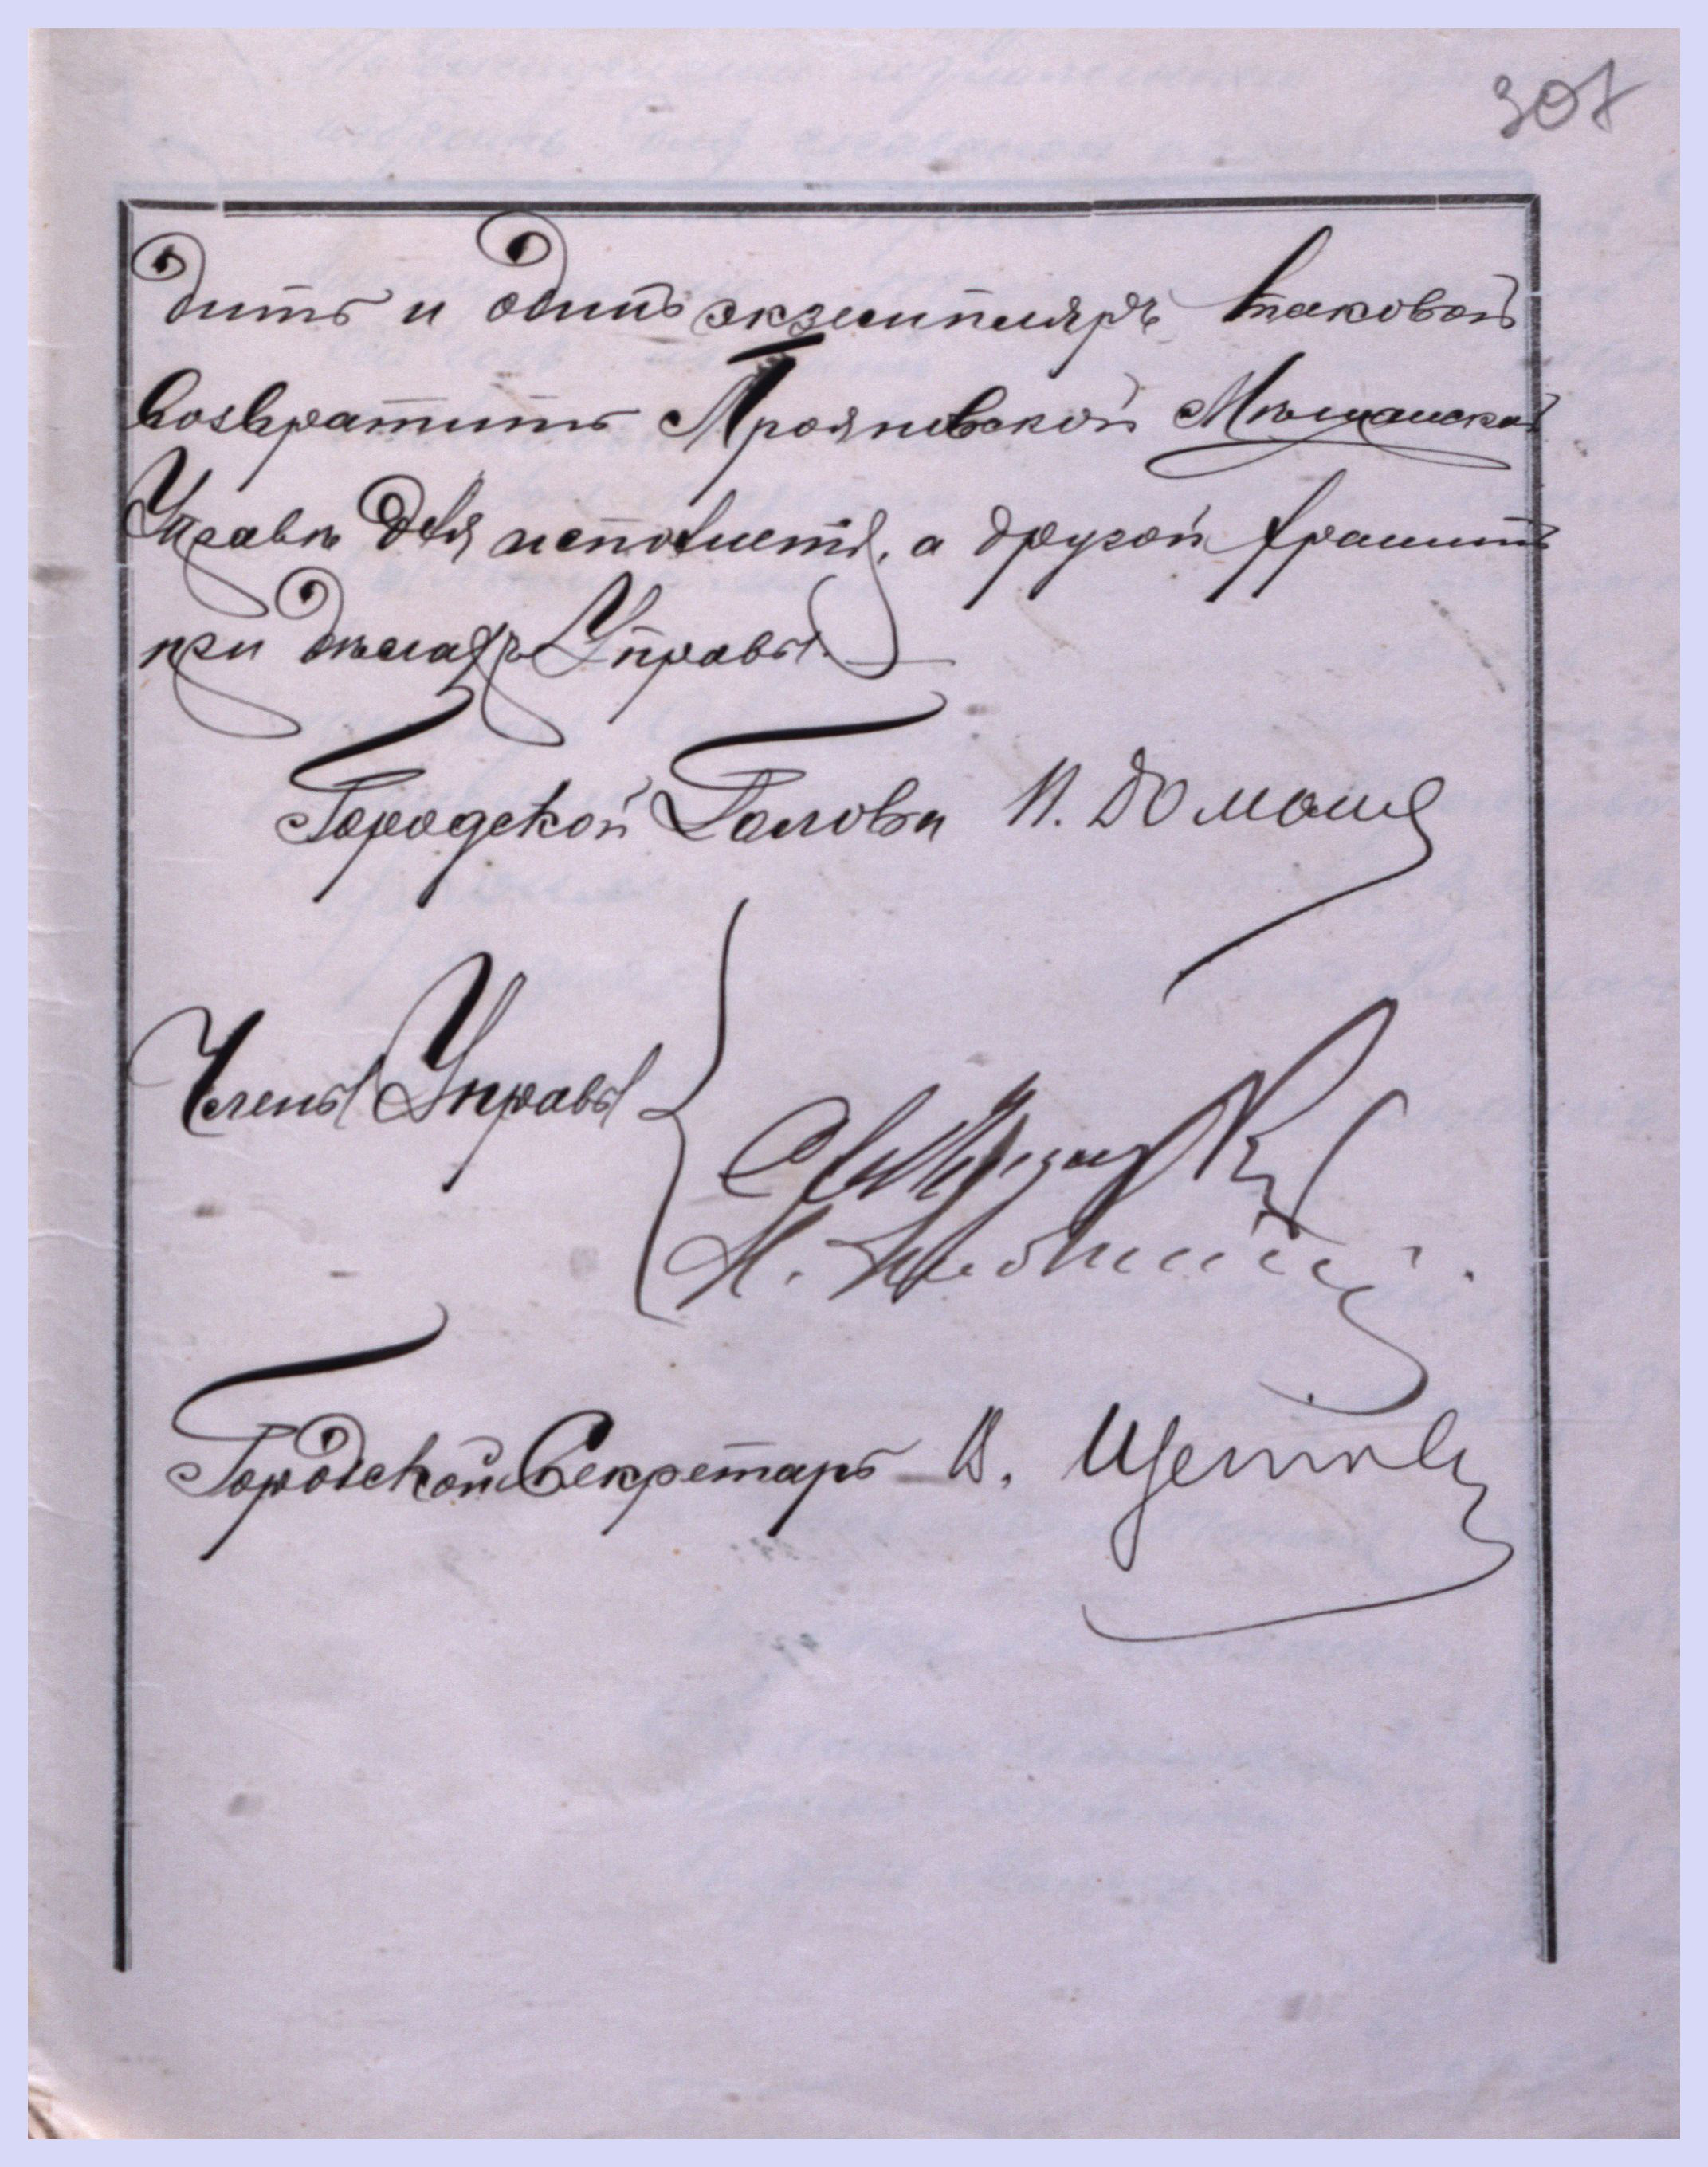 307
дить и одинъ экземпляръ таковой
возвратить Трояновской Мѣщанской
Управѣ для исполненія, а другой хранить
при дѣлахъ Управы.
Городской Голова И. Домани
Члены Управы
Городской Секретарь В. Щетков